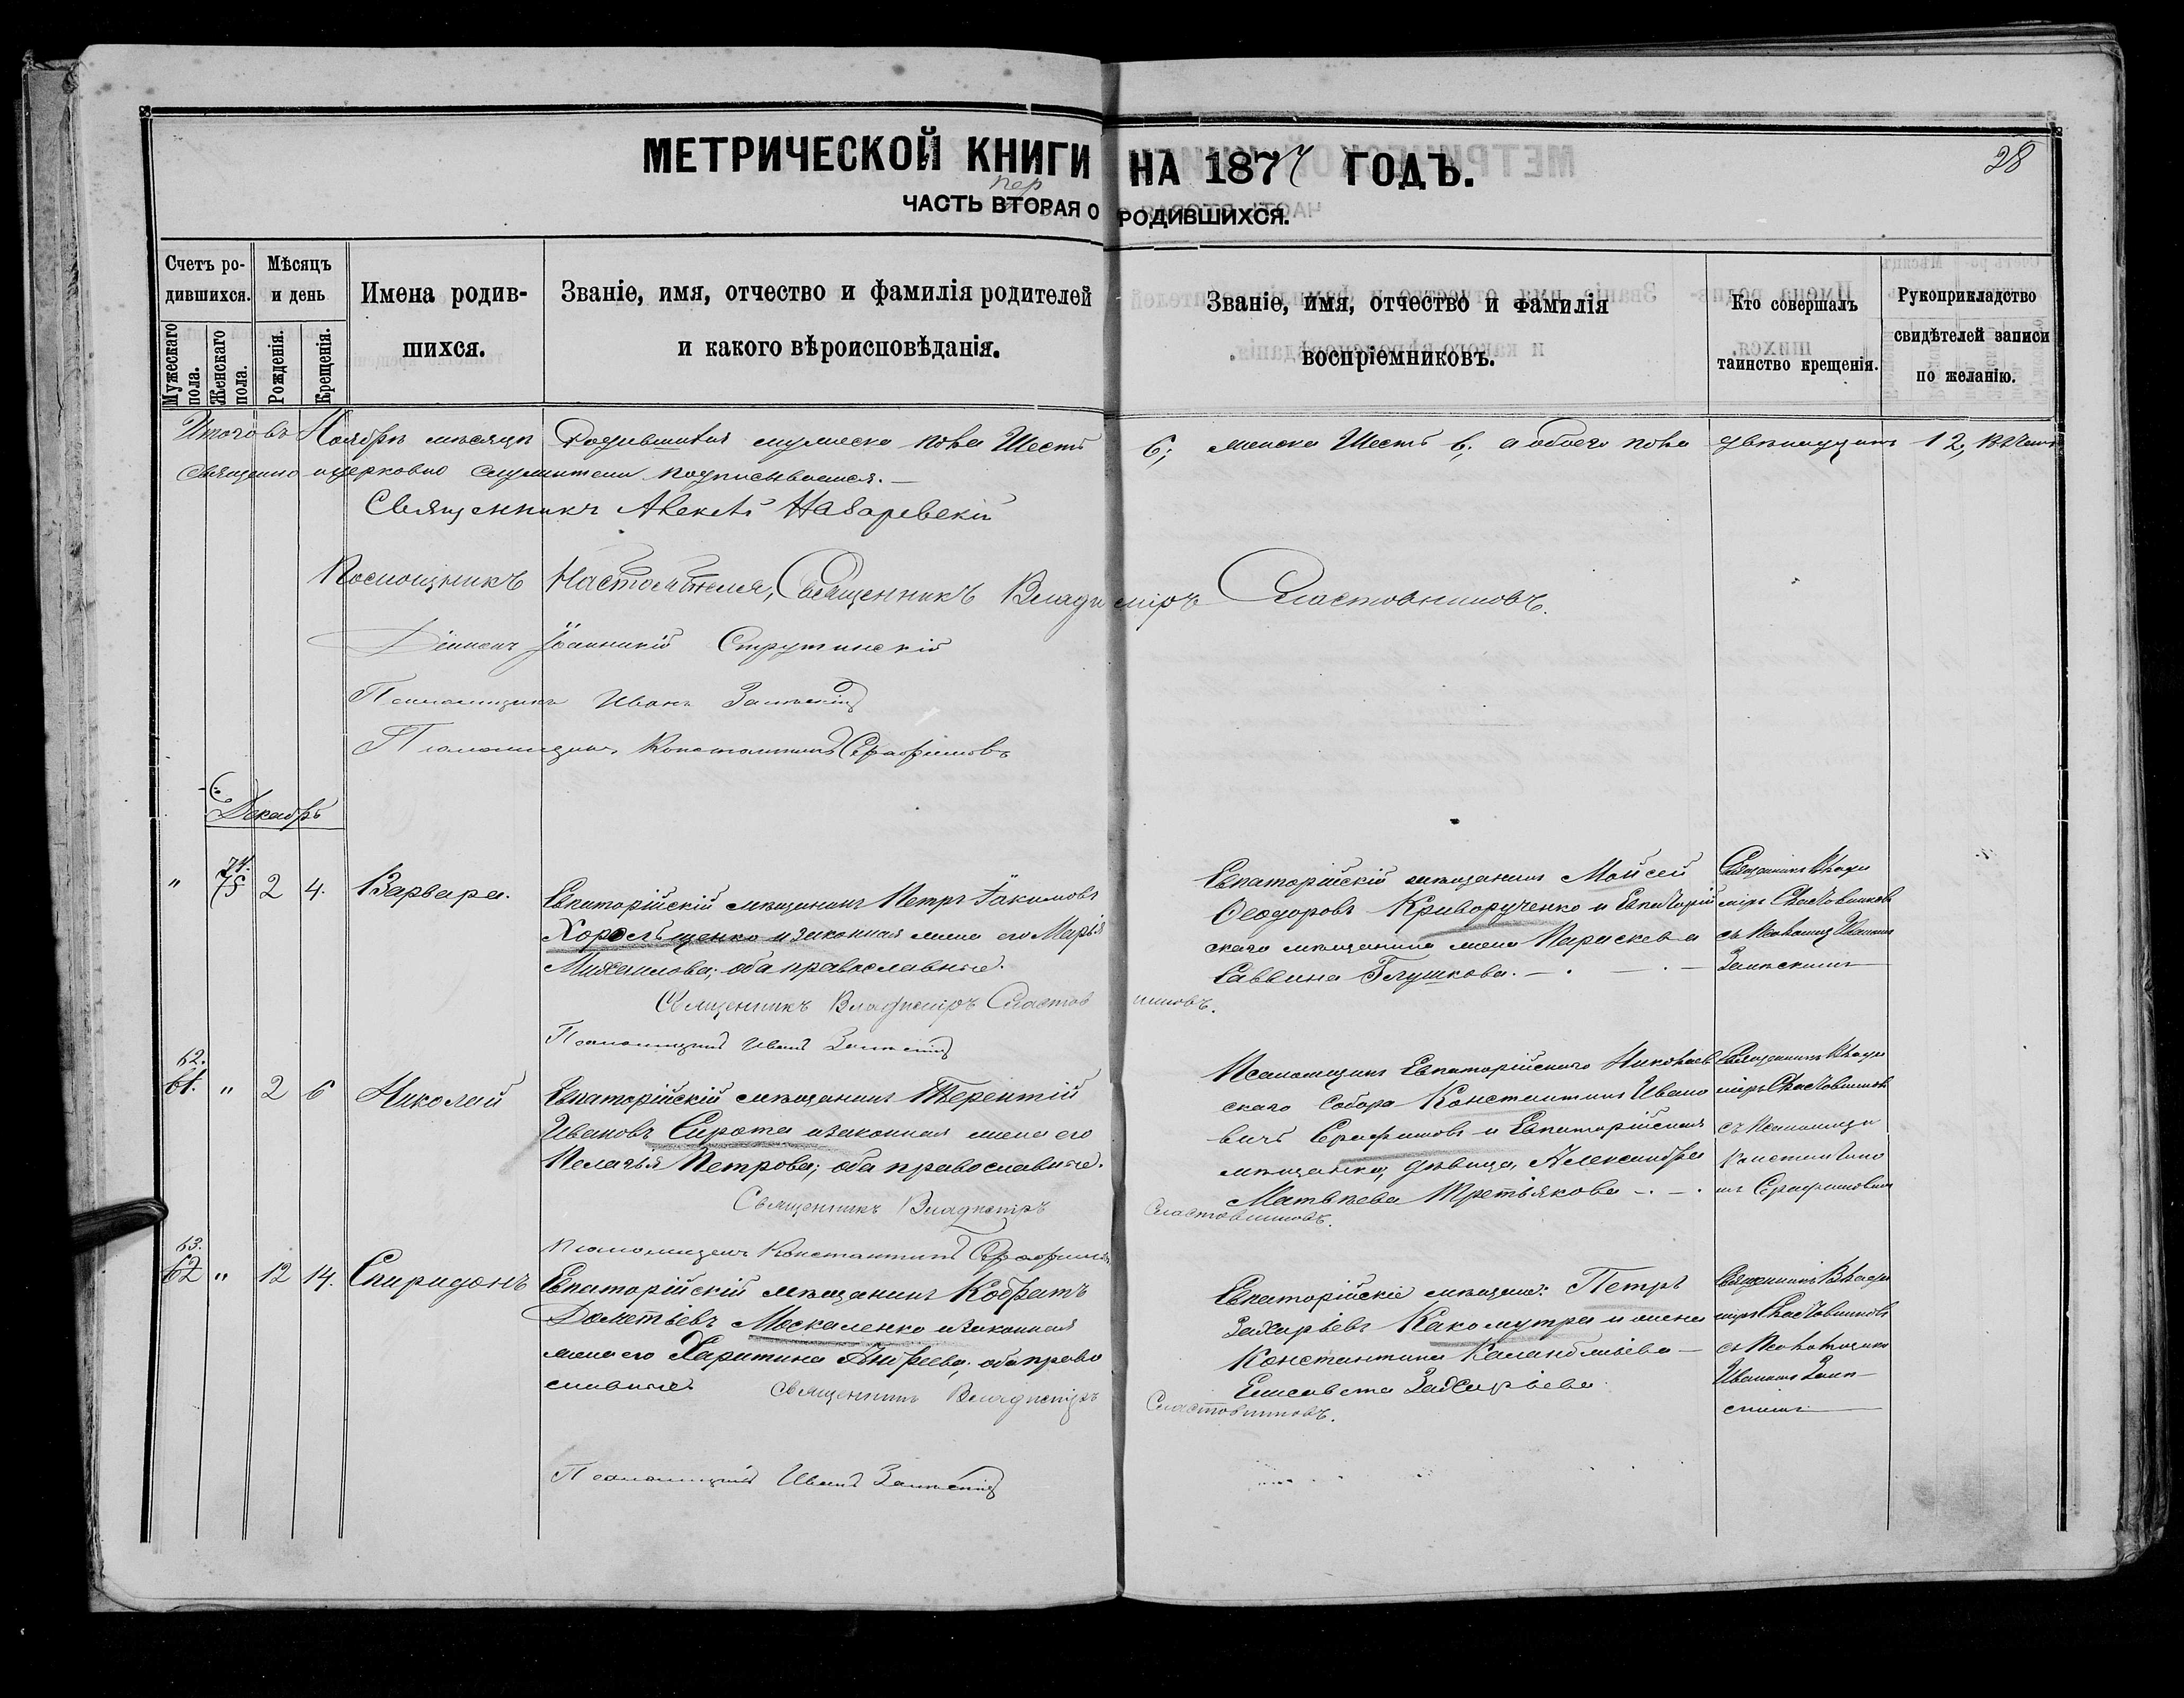 МЕТРИЧЕСКОЙ КНИГИ НА 1877 ГОДЪ.
28
пер
ЧАСТЬ ВТОРАЯ О РОДИВШИХСЯ.
Счетъ родившихся.
Мужескаго пола.
Женскаго пола.
Мѣсяцъ и день
Рожденія.
Крещенія.
Имена родившихся.
Званіе, имя, отчество и фамилія родителей
и какого вѣроисповѣданія.
Званіе, имя, отчество и фамилія
воспріемниковъ.
Кто совершалъ
таинство крещенія.
Рукоприкладство
свидѣтелей записи
по желанію.
Итого въ Ноябрѣ мѣсяцѣ Родившихся мужеска пола Шесть 6; женска Шесть 6, а обоего пола двѣнадцать 12, въ чемъ
священно и церковно служители подписываемся. —
Священникъ Алексѣй Назаревскій
Помощникъ Настоятеля, Священникъ Владиміръ Сластовниковъ.
Діаконъ Іоанникій Струтинскій
Псаломщикъ Иванъ
Псаломщикъ Константинъ Серафимовъ
Декабрь
" 74. 75 2 4. Варвара.
Евпаторійскій мѣщанинъ Петръ Іакимовъ
Хорольщенко и законная жена его Марья
Михаилова; оба православные.
Священникъ Владиміръ Сластовниковъ.
Псаломщикъ Иванъ
Евпаторійскій мѣщанинъ Мойсей
Ѳеодоровъ Криворученко и Евпаторій
скаго мѣщанина жена Параскева
Саввина Глушкова. —
Священникъ Влади
міръ Сластовниковъ
съ Псаломщ Иваномъ
62. 61. " 2 6 Николай
Евпаторійскій мѣщанинъ Терентій
Ивановъ Сирота и законная жена его
Пелагья Петрова; оба православные.
Священникъ Владиміръ Сластовниковъ.
Псаломщикъ Константинъ Серафимовъ
Псаломщикъ Евпаторійскаго Николаев
скаго Собора Константинъ Ивано
вичъ Серафимовъ и Евпаторійская
мѣщанка, дѣвица, Александра
Матвѣева Третьякова —
Священникъ Влади
міръ Сластовниковъ
съ Псаломщи
Константино
мъ Серафимовымъ
63. 62 " 12 14. Спиридонъ
Евпаторійскій мѣщанинъ Кодратъ
Дометіевъ Москаленко и законная
жена его Харитина Андреева; оба право
славные. Священникъ Владиміръ Сластовниковъ.
Псаломщикъ Иванъ
Евпаторійскіе мѣщане: Петръ
Захарьевъ Какомутра и жена
Константина —
Елисавета Захарьева
Священникъ Влади
міръ Сластовниковъ
съ Псаломщико
Иваномъ